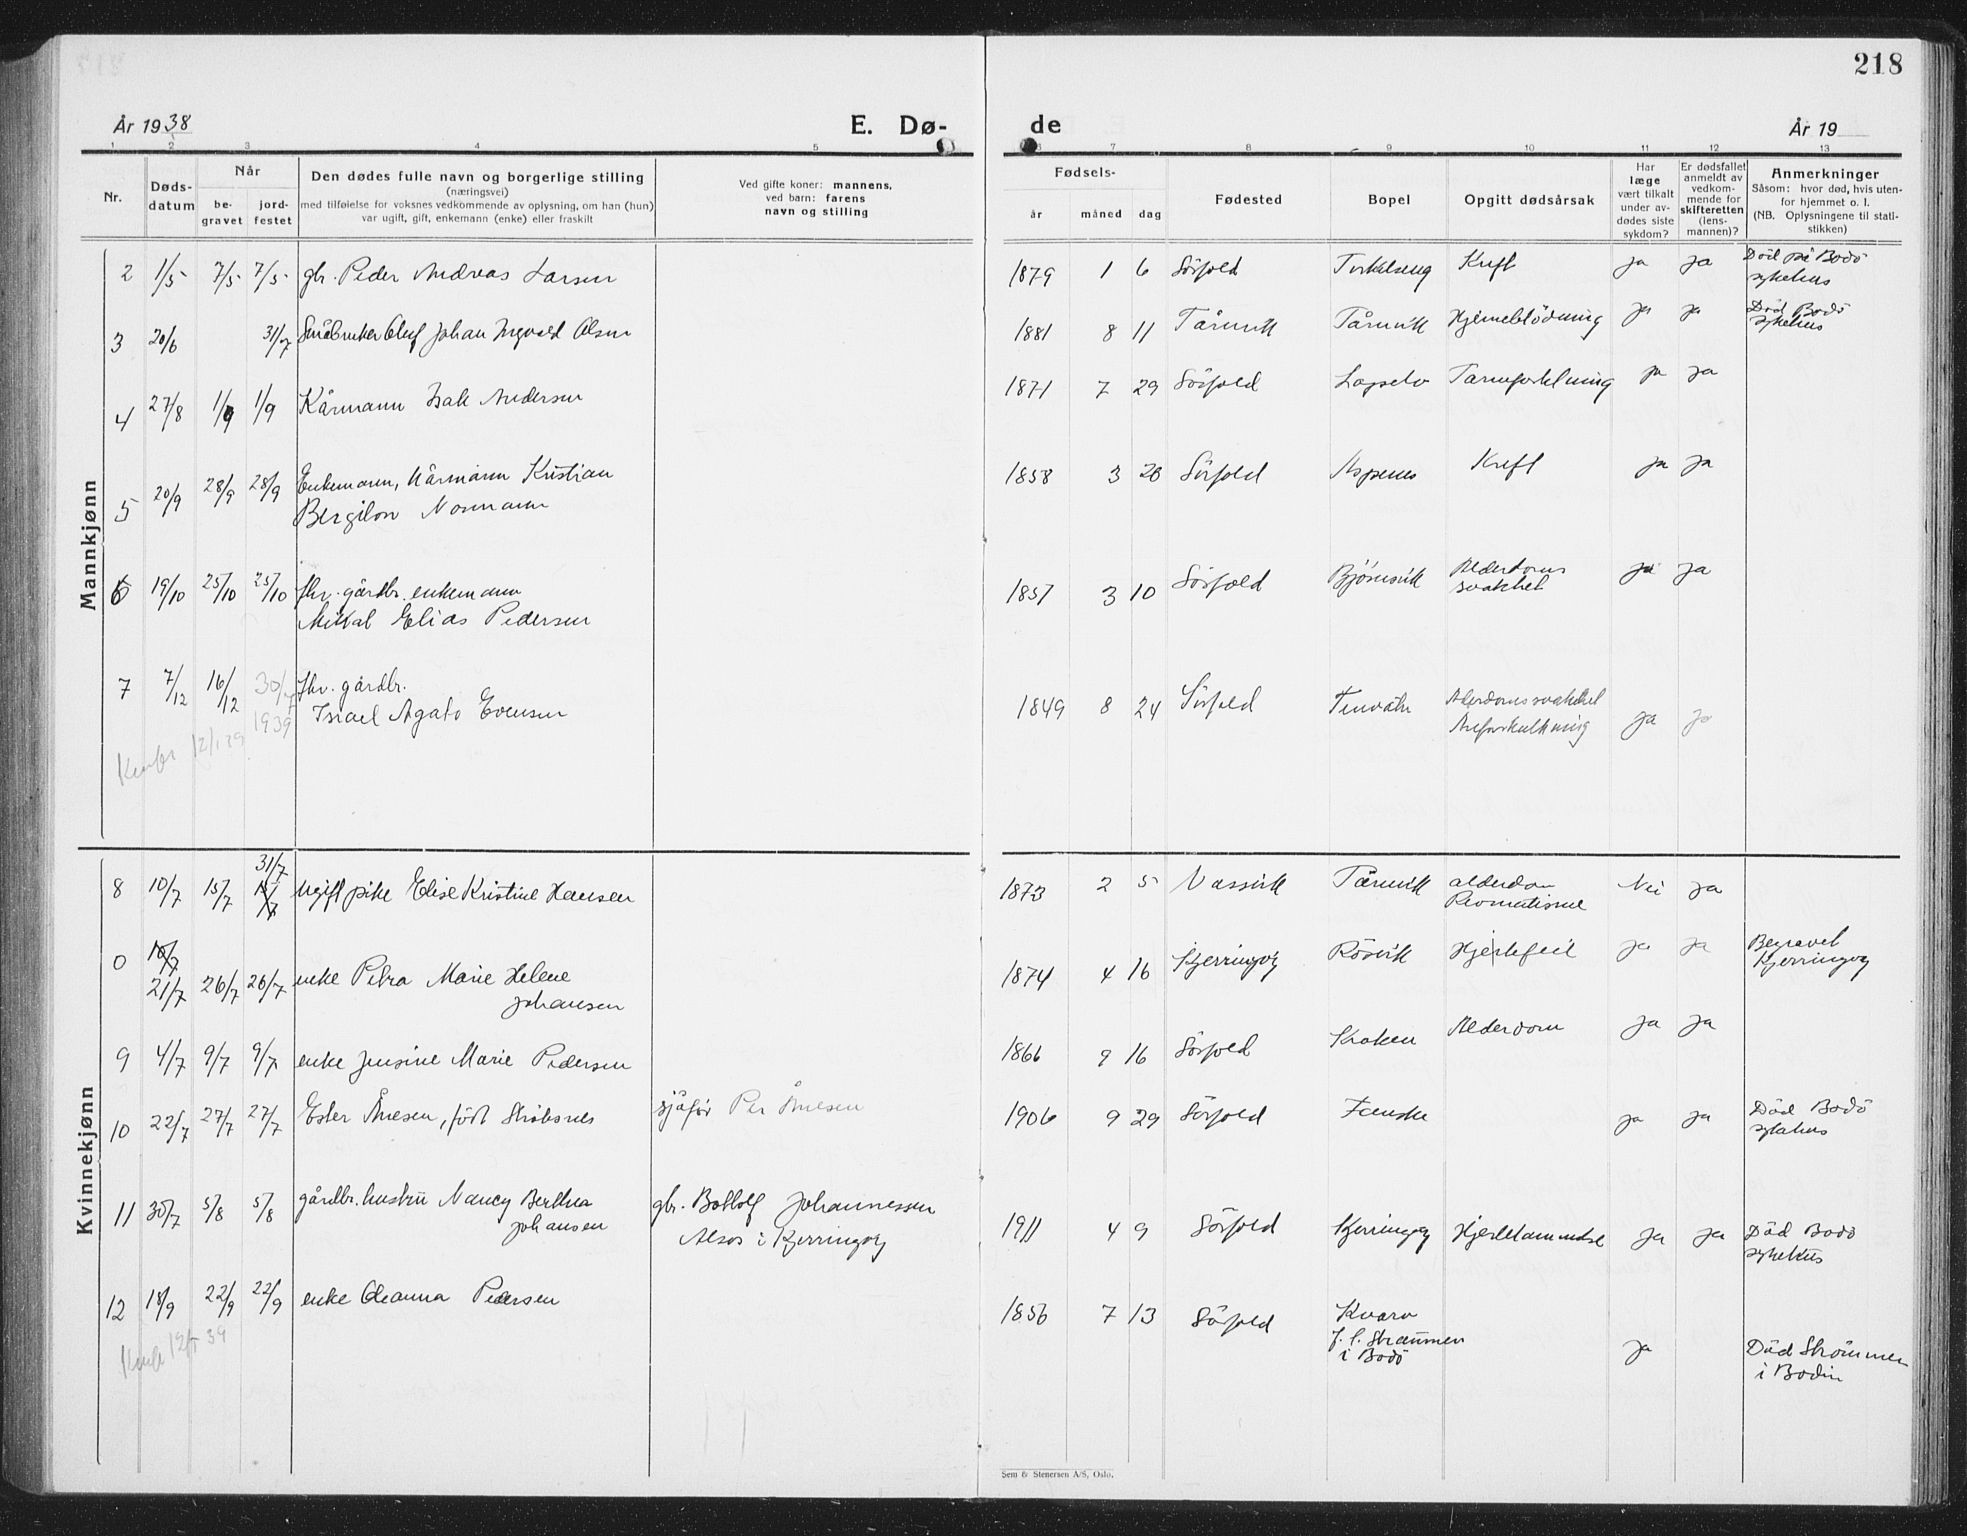 218
År 1938 E. Dø- de År 19
1 2 3 4 5 6 7 8 9 10 11 12 13
Nr. Døds-datum Når be-gravet jord-festet Den dødes fulle navn og borgerlige stilling (næringsvei) med tilføielse for voksnes vedkommende av oplysning, om han (hun) var ugift, gift, enkemann (enke) eller fraskilt Ved gifte koner: mannens, ved barn: farens navn og stilling Fødsels- år måned dag Fødested Bopel Opgitt dødsårsak Har læge vært tilkalt under av-dødes siste sykdom? Er dødsfallet anmeldt av vedkom-mende for skifteretten (lens-mannen)? Anmerkninger Såsom: hvor død, hvis uten-for hjemmet o. l. (NB. Oplysningene til stati-stikken)
Mannkjønn
2 1/5 7/5 7/5 gbr. Peder Andreas Larsen 1879 1 6 Sörfold Kreft ja ja Död på Bodö sykehus
3 20/6 31/7 Småbruker Oluf Johan Ingvald Olsen 1881 8 11 Tårnvik Tårnvik Hjerneblödning ja ja Död Bodö sykehus
4 27/8 1/9 1/9 Kårmann Isak Andersen 1871 7 29 Sörfold ja ja
5 20/9 28/9 28/9 Enkemann, Kårmann Kristian
Normann 1858 3 Sörfold Aspenes Kreft ja ja
6 19/10 25/10 25/10 fhv. gårdbr. enkemann
Mikal Elias Pedersen 1857 3 10 Sörfold Björnsvik Alderdoms svakhet ja ja
7 7/12 16/12 30/7 1939 fhv. gårdbr.
Israel Agato Evensen 1849 8 24 Sörfold Alderdomssvakhet Åreforkalkning ja ja
Kvinnekjønn
8 10/7 15/7 31/7 ugift pike Elise Kristine Hansen 1873 2 5 Nassvik Tårnvik alderdom Reomatisme Nei ja
0 10/7 21/7 26/7 26/7 enke Petra Marie Helene
Johansen 1874 4 16 Kjerringöy Rösvik Hjertefeil ja ja Begravet Kjerringöy
9 4/7 9/7 9/7 enke Jensine Marie Pedersen 1866 9 16 Sörfold Kroken Alderdom ja ja
10 22/7 27/7 27/7 Ester Ånesen, födt Ströksnes sjåför Per Ånesen 1906 9 29 Sörfold Fauske ja ja Död Bodö sykehus
11 30/7 5/8 5/8 gårdbr. hustru Nancy Berthea
Johansen gbr. Bottolf Johannessen
Alsos i Kjerringöy 1911 4 9 Sörfold Kjerringöy ja ja Död Bodö sykehus
12 18/9 22/9 22/9 enke Oleanna Pedersen 1856 7 13 Sörfold Kvarv
f. t. Straumen
i Bodö ja Död Strömmen
i Bodin
Sem & Stenersen A/S, Oslo.